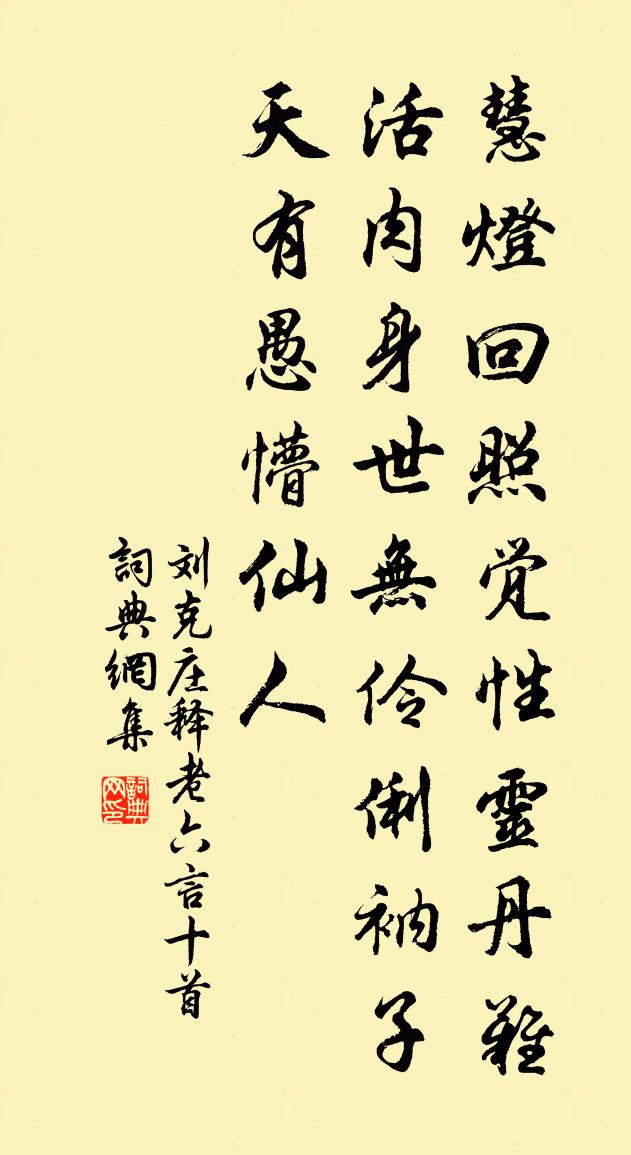 慧燈回照觉性靈丹難
活肉身世無伶俐衲子
天有愚懵仙人
刘克庄释老六言十首
詞典網集
詞典網印